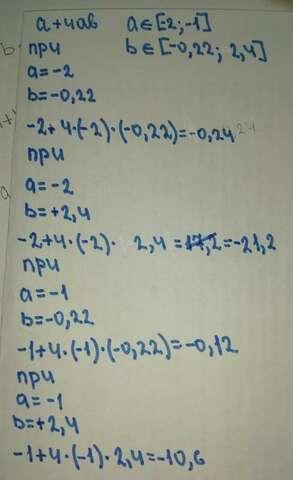 a+4ab a∈[-2;-1]
при b∈[-0,22; 2,4]
a=-2
b=-0,22
-2+4·(-2)·(-0,22)=-0,24
при
a=-2
b=+2,4
-2+4·(-2)· 2,4 = 17,2=-21,2
при
a=-1
b=-0,22
-1+4·(-1)·(-0,22)=-0,12
при
a=-1
b=+2,4
-1+4·(-1)·2,4=-10,6